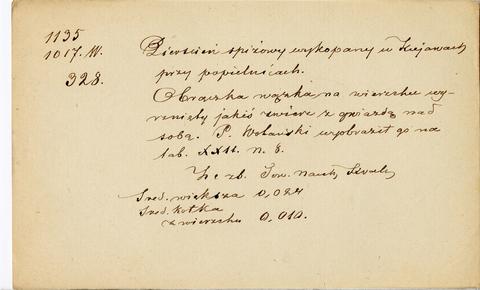 1135
1017. W.
328.
Pierścień spiżowy wykopany w Kujawach
przy popielnicach.
Obrączka wązka na wierzchu wy-
rznięty jakiś zwierz z gwiazdą nad
sobą. P. Wolański wyobraził go na
tab. XXII. n. 8.
Ze zb. Tow. Nauk.
Śred. większa 0,024
Śred. kółka
z wierzchu 0,010.